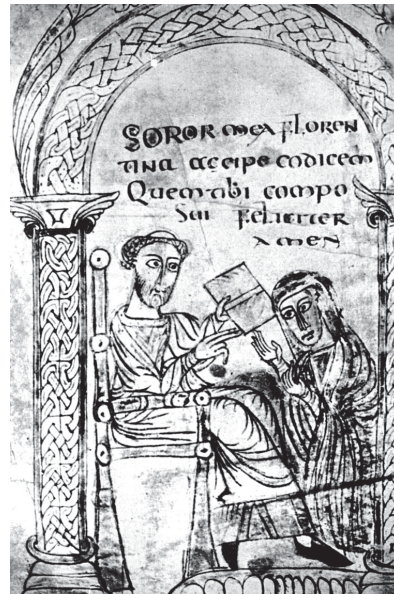 SOROR mea FLOREN
TINA accipe codicem
Quem tibi compo
Sui Feliciter
AMEN